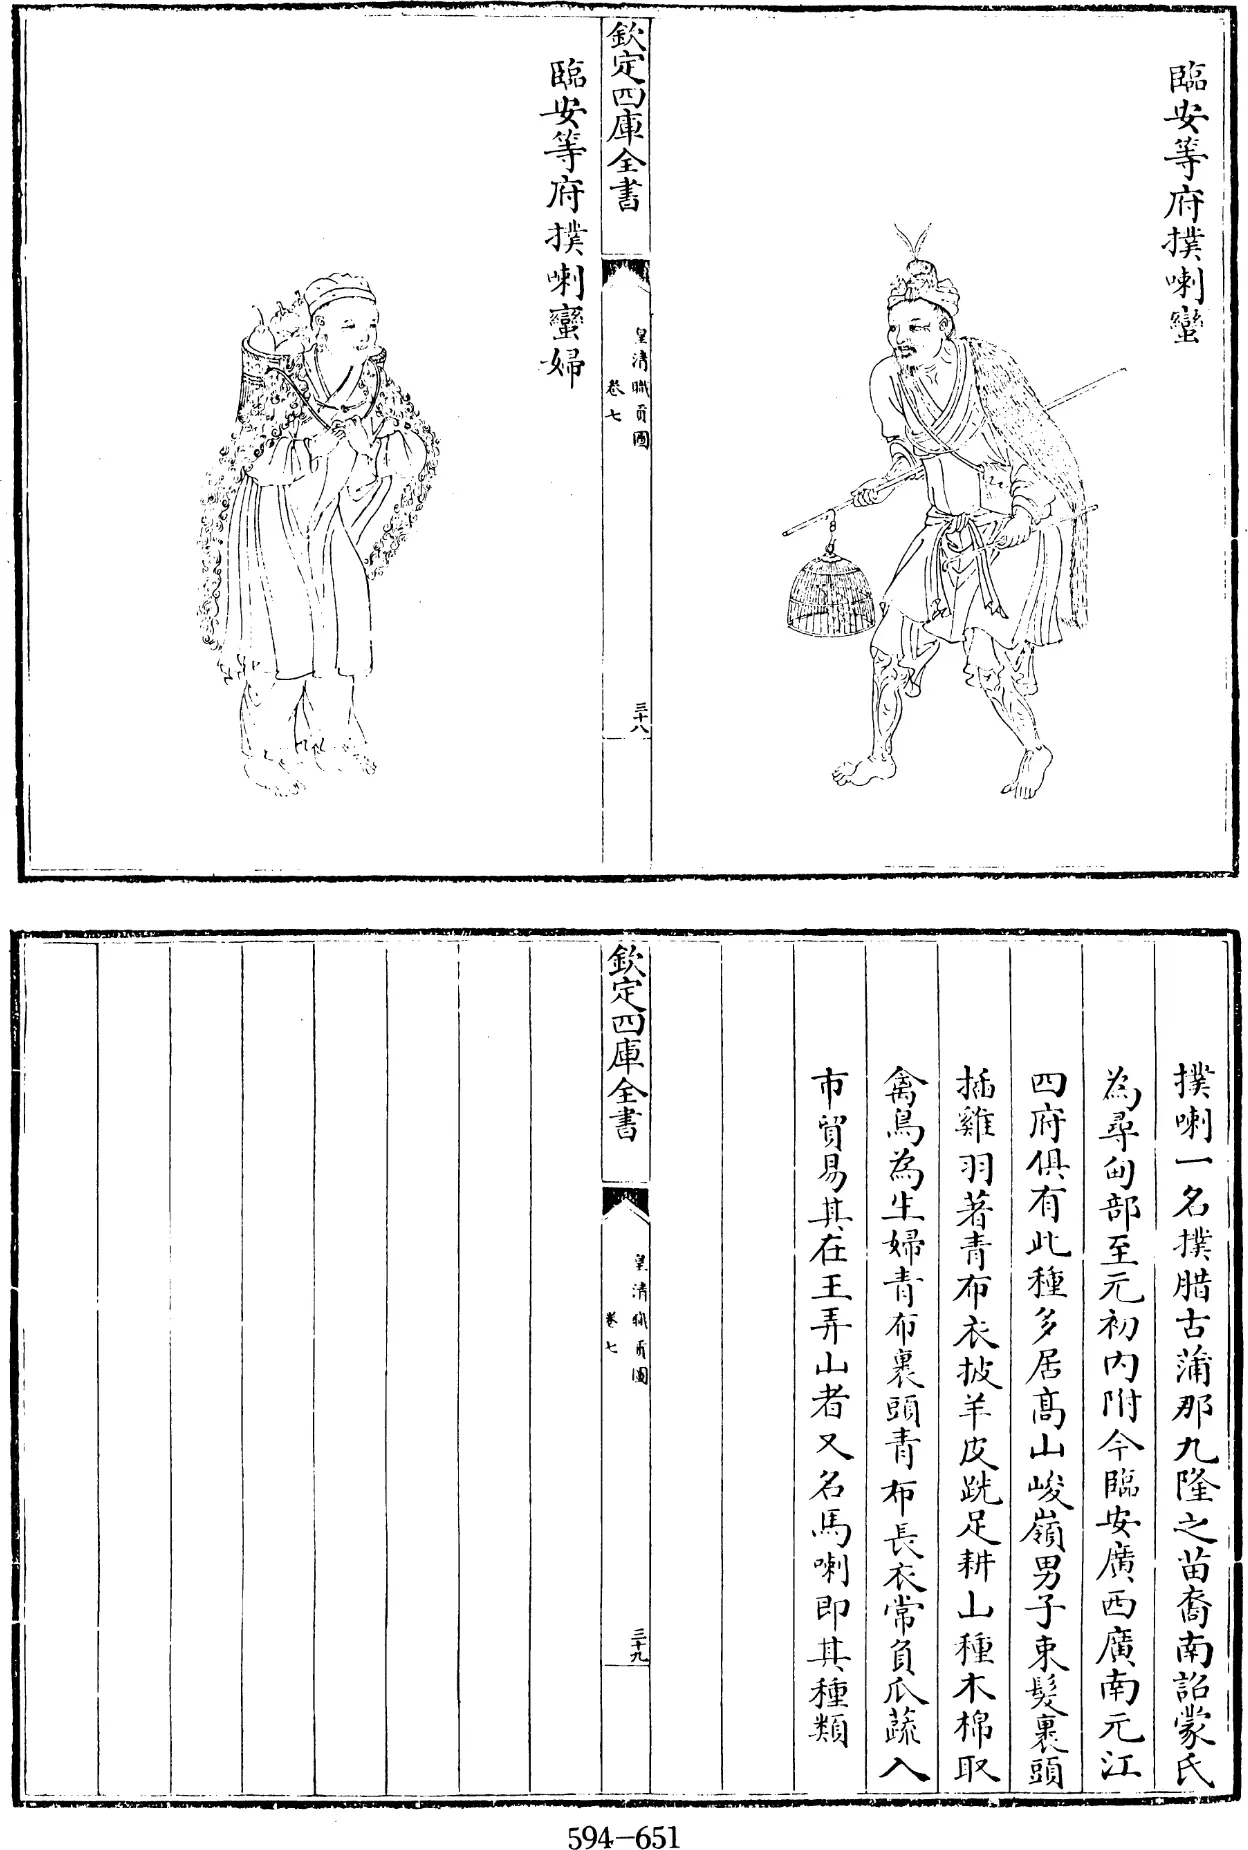 臨安等府撲喇蠻
欽定四庫全書
皇清職貢圖
卷七
三十八
臨安等府撲喇蠻婦
撲喇一名撲腊古蒲那九隆之苗裔南詔蒙氏
為尋甸部至元初内附今臨安廣西廣南元江
四府俱有此種多居高山峻嶺男子束髮裹頭
插雞羽著青布衣披羊皮跣足耕山種木棉取
禽鳥為生婦青布裹頭青布長衣常負瓜蔬入
市貿易其在王弄山者又名馬喇即其種類
欽定四庫全書
皇清職貢圖
卷七
三十九
594-651